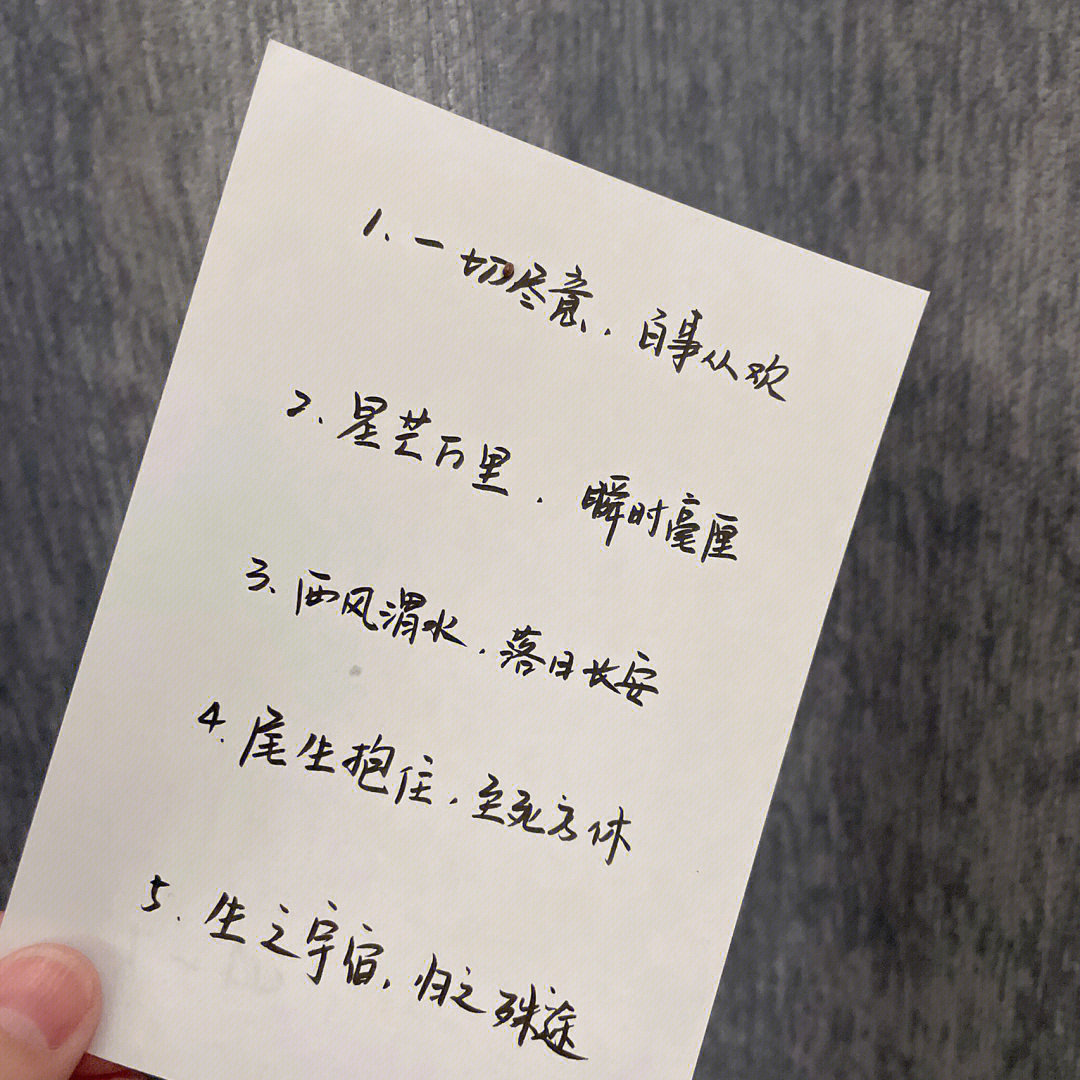 1. 一切尽意,百事从欢
2. 星芒万里,瞬时毫厘
3. 西风渭水,落日长安
4. 尾生抱住,至死方休
5. 生之宇宿,归之殊途